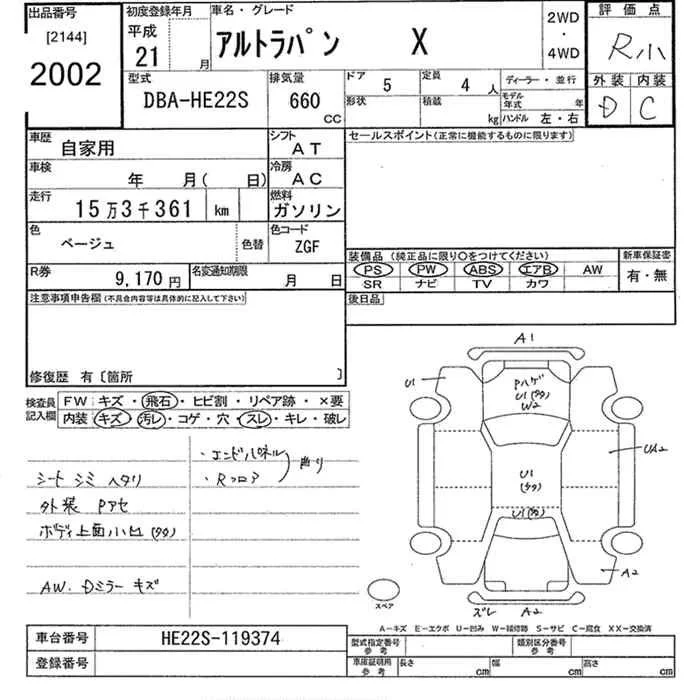 出品番号
[2144]
2002
初度登録年月
平成
21 月
車名・グレード
アルトラパン X
2WD
・
4WD
評価点
R小
外装 内装
D C
型式
DBA-HE22S
排気量
660
CC
ドア 5
形状
定員 4 人
積載 kg
ディーラー・並行
モデル年式 年
ハンドル 左・右
車歴
自家用
シフト
AT
車検
年 月( 日)
冷房
AC
走行
15万3千361 km
燃料
ガソリン
色
ベージュ
色替
色コード
ZGF
R券
9,170 円
名変通知期限
月 日
セールスポイント(正常に機能するものに限ります)
装備品(純正品に限り○をつけてください)
PS PW ABS エアB AW
SR ナビ TV カワ
新車保証書
有・無
後日品
注意事項申告欄(不具合内容等は具体的に記入して下さい)
修復歴 有〔箇所 〕
検査員
記入欄
FW キズ・飛石・ヒビ割・リペア跡・×要
内装 キズ・汚レ・コゲ・穴・スレ・キレ・破レ
・エンドパネル
・Rフロア
曲り
シート シミ ヘタリ
外装 Pアセ
ボディ上面小凹(タタ)
AW. Dミラー キズ
A1
U1
Pハゲ
U1(タタ)
W2
UA2
U1
(タタ)
U1(タタ)
A2
スペア
ズレ A2
A-キズ E-エクボ U-凹み W-補修跡 S-サビ C-腐食 XX-交換済
車台番号
HE22S-119374
登録番号
型式指定番号
参考
類別区分番号
参考
車庫証明用
参考
長さ cm 幅 cm 高さ cm